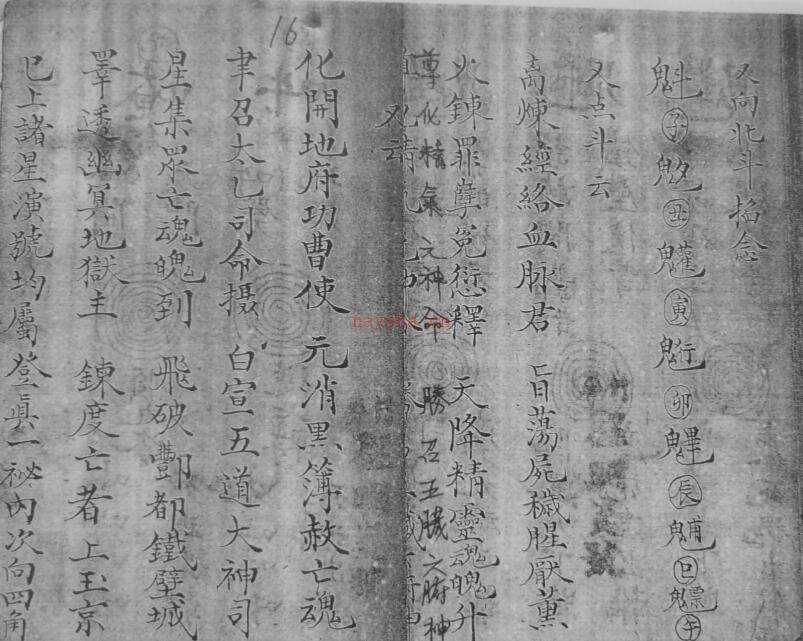 又向北斗掐念
魁子𩲃丑䰢寅魓卯魓辰𩳐巳魒午
又点斗云
高煉經絡血脉君 旨蕩屍穢腥厭薰
火鍊罪孽冤愆釋 天降精靈魂魄升
尊化精氣元神命 勝召五臟六腑神
又云
化開地府功曹使 元消黑簿赦亡魂
聿召太乙司命攝 白宣五道大神司
星集眾亡魂魄到 飛破酆都鐵壁城
罩透幽冥地獄主 鍊度亡者上玉京
已上諸星演號均屬登真一祕內次向四角
16
nayona.cn